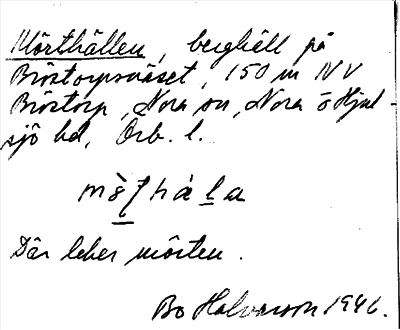 Mörthällen, berghäll på
Bröstorpsnäset, 150 m NV
Bröstorp, Nora sn, Nora o Hjul-
sjö hd, Örb. l.
Där leker mörten.
Bo Halvarson 1946.